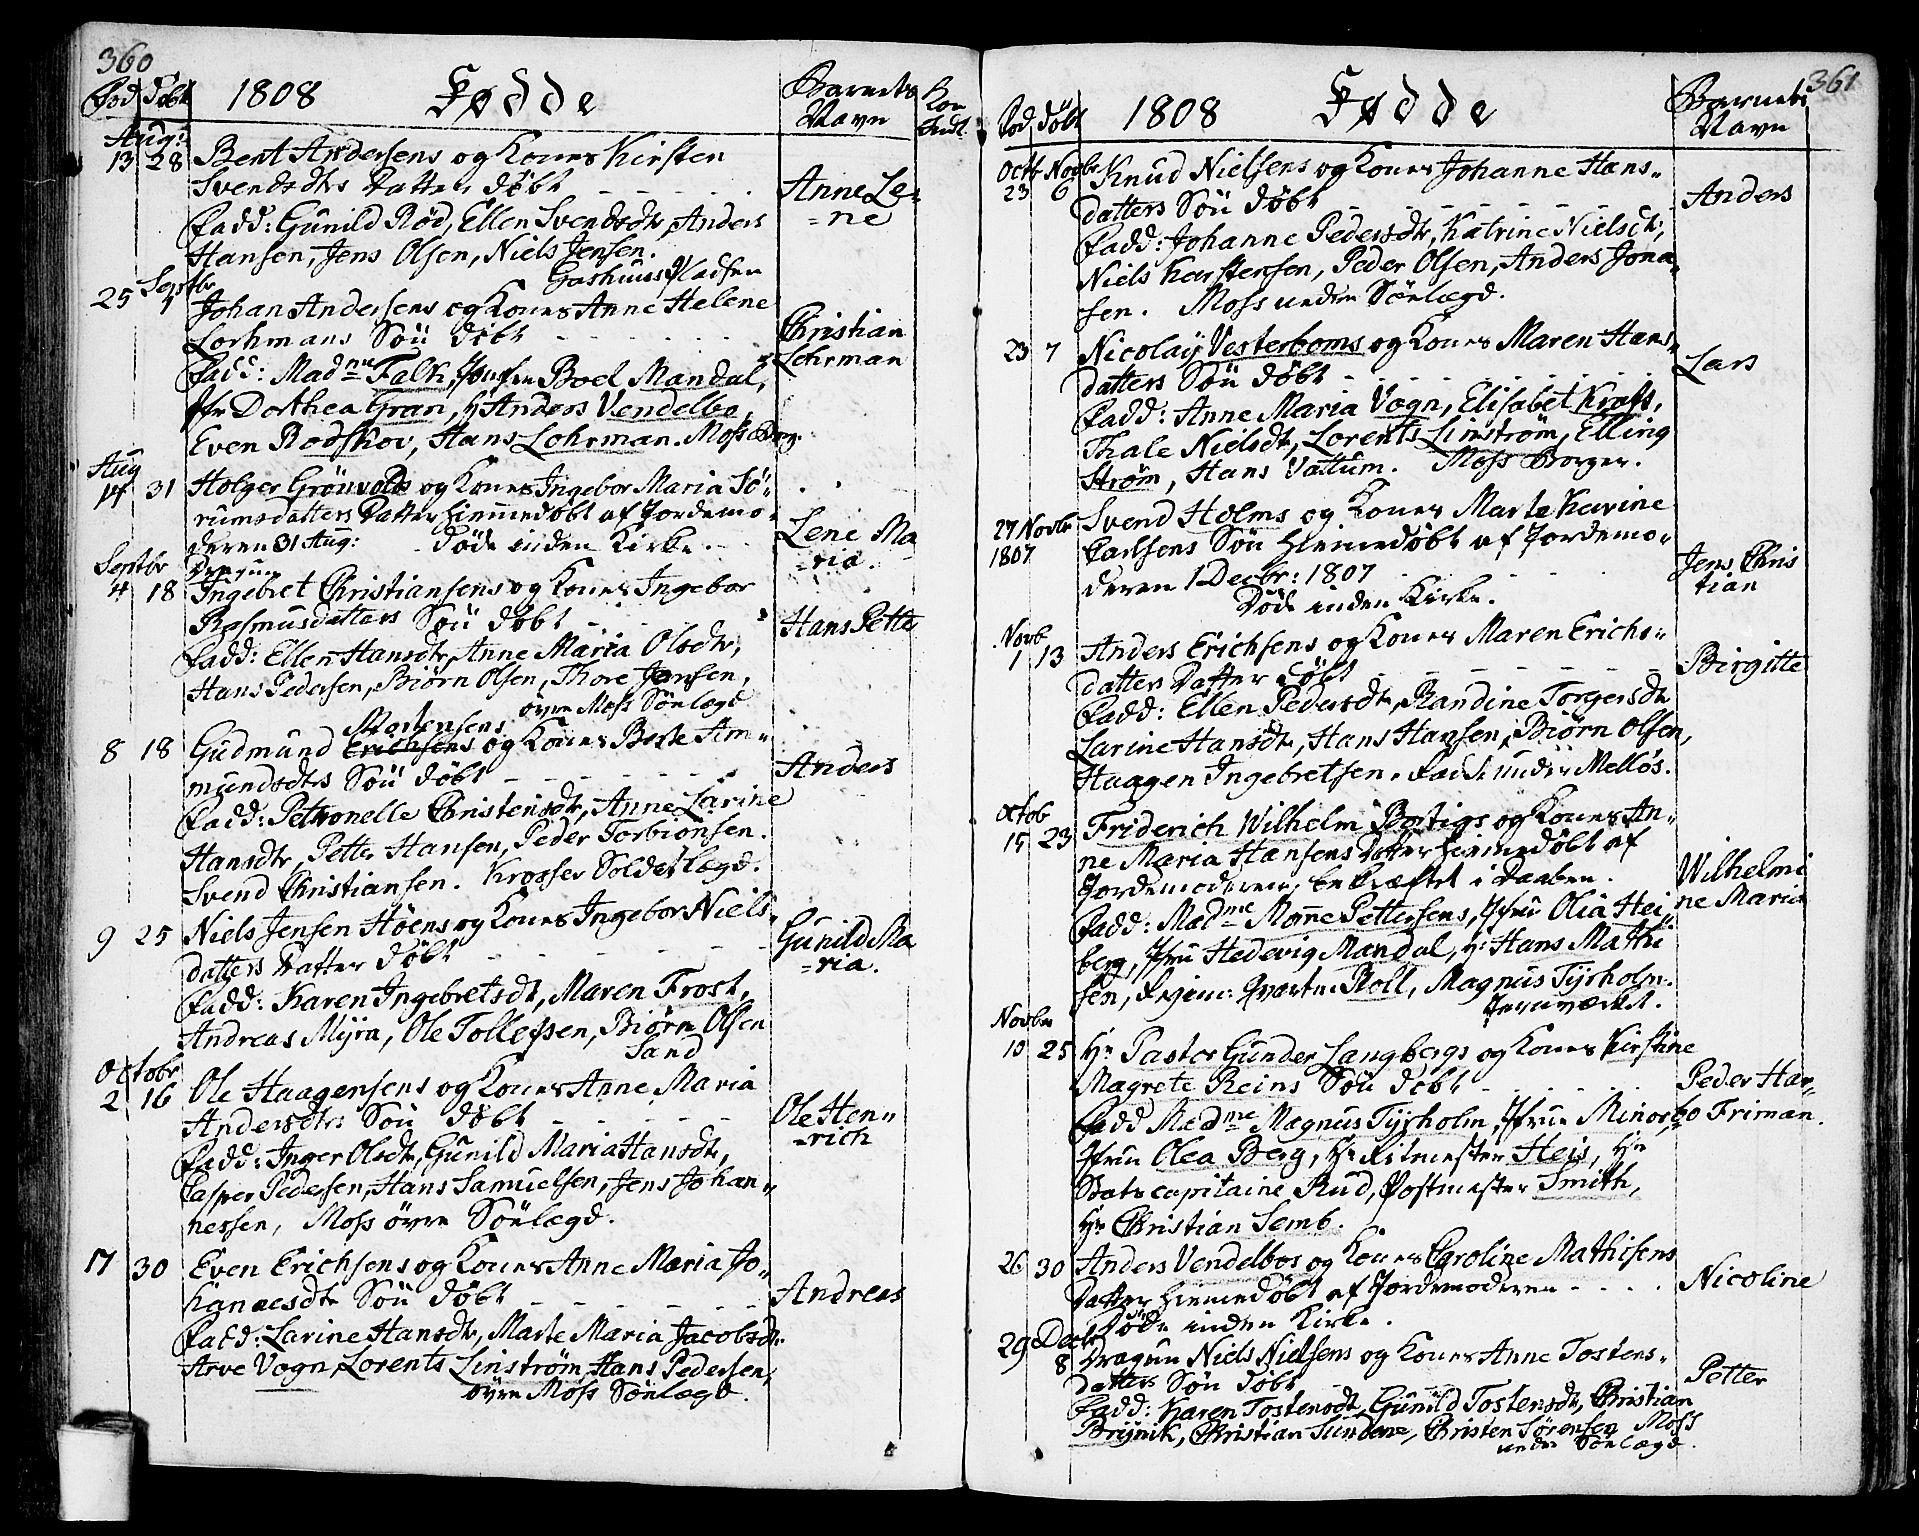 360
Fød Døbt 1808 Fødde Barnets Navn Kon Indl.
Aug:
13 28 Bent Andersens og Kones Kirsten
Svendsdtrs Datter døbt - - - Anne Le=
=ne
Fadd: Gunild Rød, Ellen Svendsdtr, Anders
Hansen, Jens Olsen, Niels Jensen.
Septbr
25 4 Johan Andersens og Kones Anne Helene
Lorhmans Søn døbt - - - Christian
Lohrman
Fadd: Madme Falk, Jomfru Boel Mandal,
Jfr Dorthea Gran, Hr Anders Vendelbo,
Even Rodskov, Hans Lohrman. Moss Borg.
Aug
14 31 Holger Grönvolds og Kones Ingebor Maria Sö=
rumsdatters Datter hiemmedøbt af Jordemo=
deren 31 Aug: døde inden Kirke. Lene Ma
=ria.
Septbr Dragun
4 18 Ingebret Christiansens og Kones Ingebor
Rasmusdatters Søn døbt - - Hans Petter
Fadd: Ellen Hansdtr, Anne Maria Olsdtr,
Hans Pedersen, Biørn Olsen, Thore Jensen,
øvre Moss Sönlægd
Mortensens
8 18 Gudmund Erichsens og Kones Berte Am=
mundsdtrs Søn døbt - - - Anders
Fadd: Petronelle Christensdtr, Anne Larine
Hansdtr, Petter Hansen, Peder Torbiönsen.
Svend Christiansen. Krosser Soldetlægd.
9 25 Niels Jensen Höens og Kones Ingebor Niels=
datters Datter døbt - - - Gunild Ma
=ria.
Fadd: Karen Ingebretsdtr, Maren Frost,
Andreas Myra, Ole Tollefsen, Biørn Olsen
Sand
Octobr
2 16 Ole Haagensens og Kones Anne Maria
Andersdtrs Søn døbt - - - Ole Hen=
=rich
Fadd: Inger Olsdtr, Gunild Maria Hansdtr,
Casper Pedersen, Hans Samuelsen, Jens Johan=
nessen, Moss övre Sönlægd.
17 30 Even Erichsens og Kones Anne Maria Jo=
hannesdtr Søn døbt - - - Andreas
Fadd: Larine Hansdtr, Marte Maria Jacobsdtr
Arve Vogn, Lorents Linström, Hans Pedersen,
övre Moss Sönlægd.
361
Fød Døbt 1808 Fødde Barnets Navn
Octr Novbr
23 6 Knud Nielsens og Kones Johanne Hans=
datters Søn døbt - - - Anders
Fadd: Johanne Pedersdtr, Katrine Nielsdtr,
Niels Karstensen, Peder Olsen, Anders Jona=
sen. Moss under Sönlægd.
23 7 Nicolaij Vesterboms og Kones Maren Hans=
datters Søn døbt - - - Lars
Fadd: Anne Maria Vogn, Elisabet Kraft,
Thale Nielsdtr, Lorents Linström, Elling
Ström, Hans Vattum. Moss Borger.
27 Novbr
1807 Svend Holms og Kones Marte Karine
Carlsens Søn hiemmedøbt af Jordemo=
deren 1 Decbr: 1807 - - - Jens Chris
tian
Døde inden Kirke.
Novb
1 13 Anders Erichsens og Kones Maren Erichs=
datters Datter døbt - - - Birgitte
Fadd: Ellen Pedersdtr, Randine Torgersdtr
Larine Hansdtr, Hans Hansen, Biørn Olsen,
Haagen Ingebretsen. under Mellös.
Octob
15 23 Friderich Wilhelm Bortigs og Kones An=
ne Maria Hansens Datter hiemmedøbt af
Jordemoderen, bekræftet i Daaben. Wilhelmi
ne Maria
Fadd: Madme Monne Pettersens, Jfru Olia Hei
berg, Jfru Hedevig Mandal, Hr Hans Mathi
sen, Roll, Magnus Tyrholm.
Jernværket.
Novbr
10 25 Hr Pastor Gunder Langbergs og Kones Kirstine
Magrete Reins Søn døbt - - - Peder Har=
bo Friman.
Fadd Madme Magnus Tyrholm, Jfrue Minor,
Jfrun Olea Berg, Hr Ritmester Heis, Hr
Stabscapitaine Rud, Postmester Smith,
Hr Christian Semb.
26 30 Anders Vendelbos og Kones Caroline Mathisens
Datter hiemmedøbt af Jordemoderen - - - Nicoline
Døde inden Kirke.
29 Decbr
8 Dragun Niels Nielsens og Kones Anne Tostens=
datters Søn døbt - Petter
Fadd: Karen Tostensdtr, Gunild Tostensdtr, Christian
Brynik, Christian Sundene, Christen Sørensen Moss
under Sönlægd.